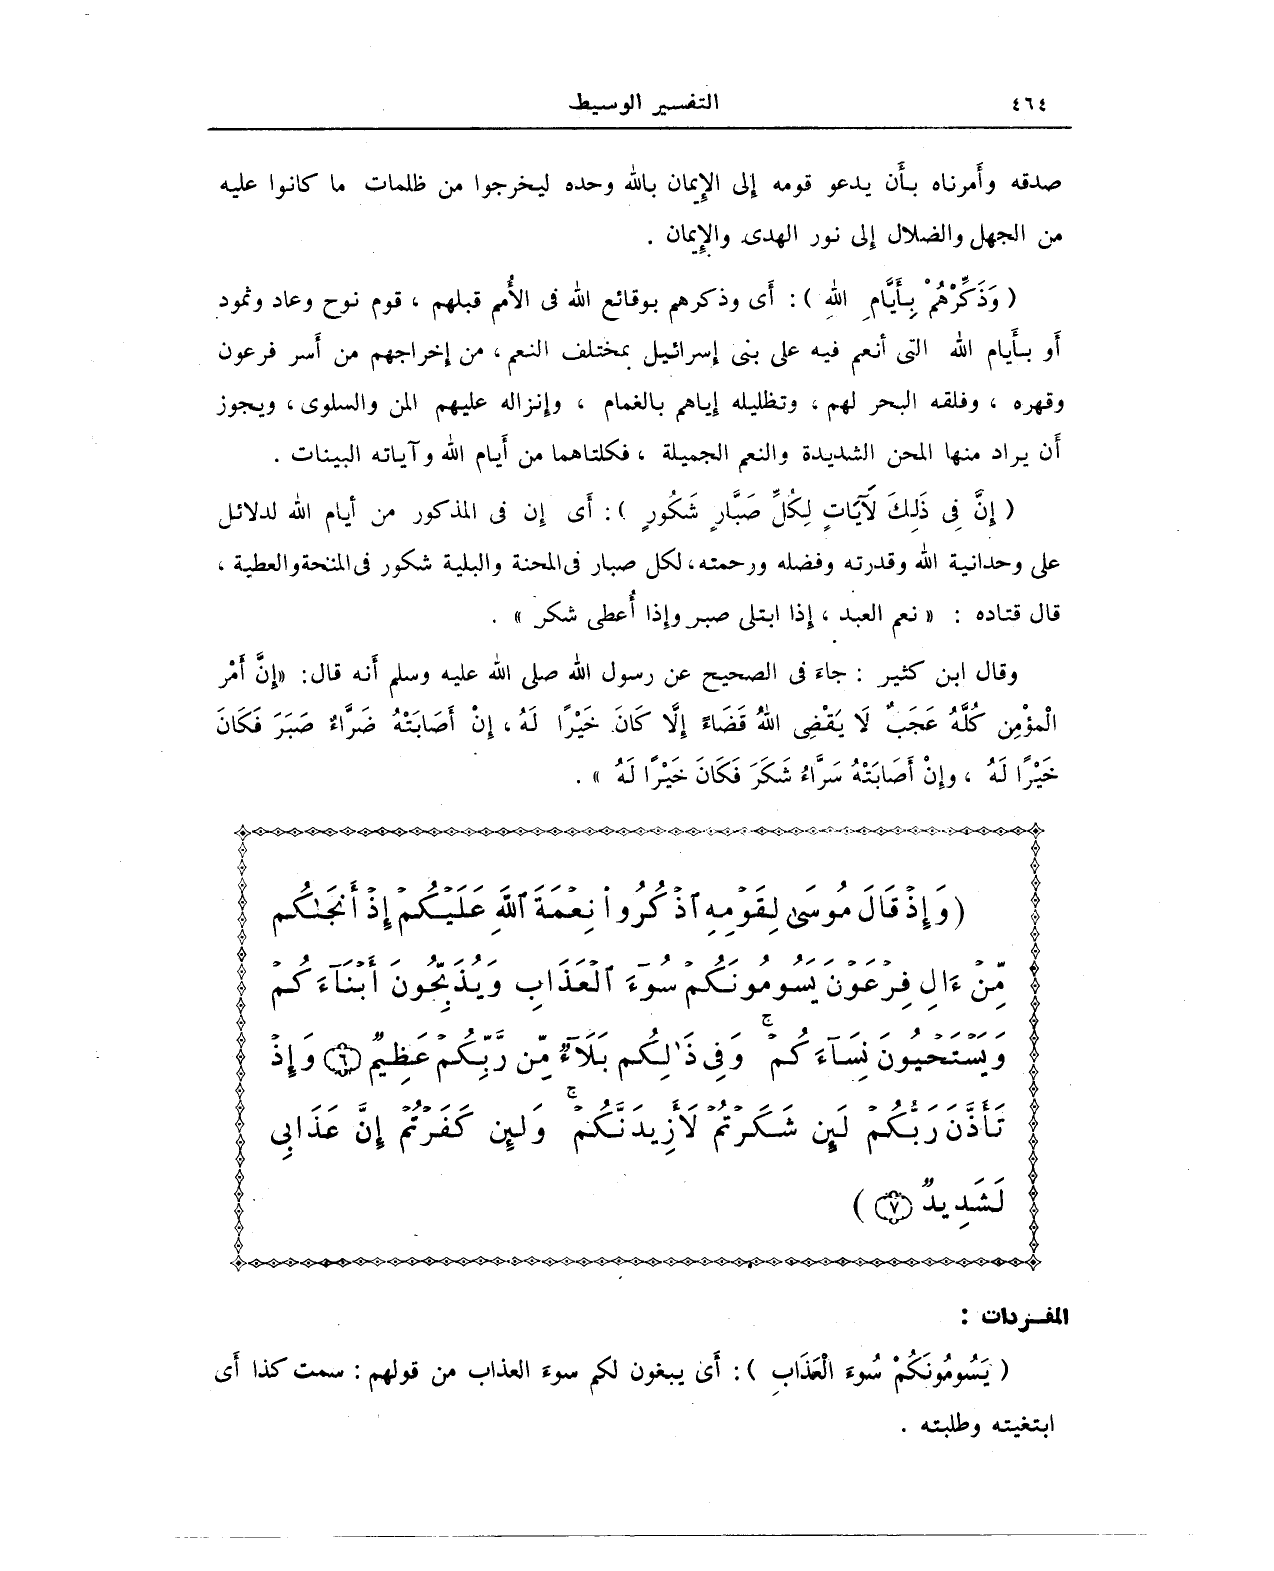 ٤٦٤
التفسير الوسيط
صدقه وأمرناه بأن يدعو قومه إلى الإيمان بالله وحده ليخرجوا من ظلمات ما كانوا عليه
من الجهل والضلال إلى نور الهدى والإيمان .
( وَذَكِّرْهُمْ بِأَيَّامِ اللهِ ) : أى وذكرهم بوقائع الله فى الأُمم قبلهم ، قوم نوح وعاد وثمود
أو بأَيام الله التى أنعم فيه على بنى إسرائيل بمختلف النعم ، من إخراجهم من أسر فرعون
وقهره ، وفلقه البحر لهم ، وتظليله إياهم بالغمام ، وإنزاله عليهم المن والسلوى ، ويجوز
أن يراد منها المحن الشديدة والنعم الجميلة ، فكلتاهما من أيام الله وآياته البينات .
( إِنَّ فِى ذَلِكَ لَآيَاتٍ لِكُلِّ صَبَّارٍ شَكُورٍ ) : أى إن فى المذكور من أيام الله لدلائل
على وحدانية الله وقدرته وفضله ورحمته ، لكل صبار فى المحنة والبلية شكور فى المنحة والعطية ،
قال قتاده : « نعم العبد ، إذا ابتلى صبر وإذا أُعطى شكر » .
وقال ابن كثير : جاءَ فى الصحيح عن رسول الله صلى الله عليه وسلم أنه قال : «إِنَّ أَمْر
الْمؤْمِن كُلَّهُ عَجَبٌ لَا يَقْضِى اللهُ قَضَاءً إِلَّا كَانَ خَيْرًا لَهُ ، إِنْ أَصَابَتْهُ ضَرَّاءُ صَبَرَ فَكَانَ
خَيْرًا لَهُ ، وإِنْ أَصَابَتْهُ سَرَّاءُ شَكَرَ فَكَانَ خَيْرًا لَهُ » .
( وَإِذْ قَالَ مُوسَىٰ لِقَوْمِهِ ٱذْكُرُوا۟ نِعْمَةَ ٱللَّهِ عَلَيْكُمْ إِذْ أَنجَىٰكُم
مِّنْ ءَالِ فِرْعَوْنَ يَسُومُونَكُمْ سُوٓءَ ٱلْعَذَابِ وَيُذَبِّحُونَ أَبْنَآءَكُمْ
وَيَسْتَحْيُونَ نِسَآءَكُمْ ۚ وَفِى ذَٰلِكُم بَلَآءٌ مِّن رَّبِّكُمْ عَظِيمٌ ﴿٦﴾ وَإِذْ
تَأَذَّنَ رَبُّكُمْ لَئِن شَكَرْتُمْ لَأَزِيدَنَّكُمْ ۖ وَلَئِن كَفَرْتُمْ إِنَّ عَذَابِى
لَشَدِيدٌ ﴿٧﴾ )
المفردات :
( يَسُومُونَكُمْ سُوءَ الْعَذَابِ ) : أَى يبغون لكم سوءَ العذاب من قولهم : سمت كذا أَى
ابتغيته وطلبته .